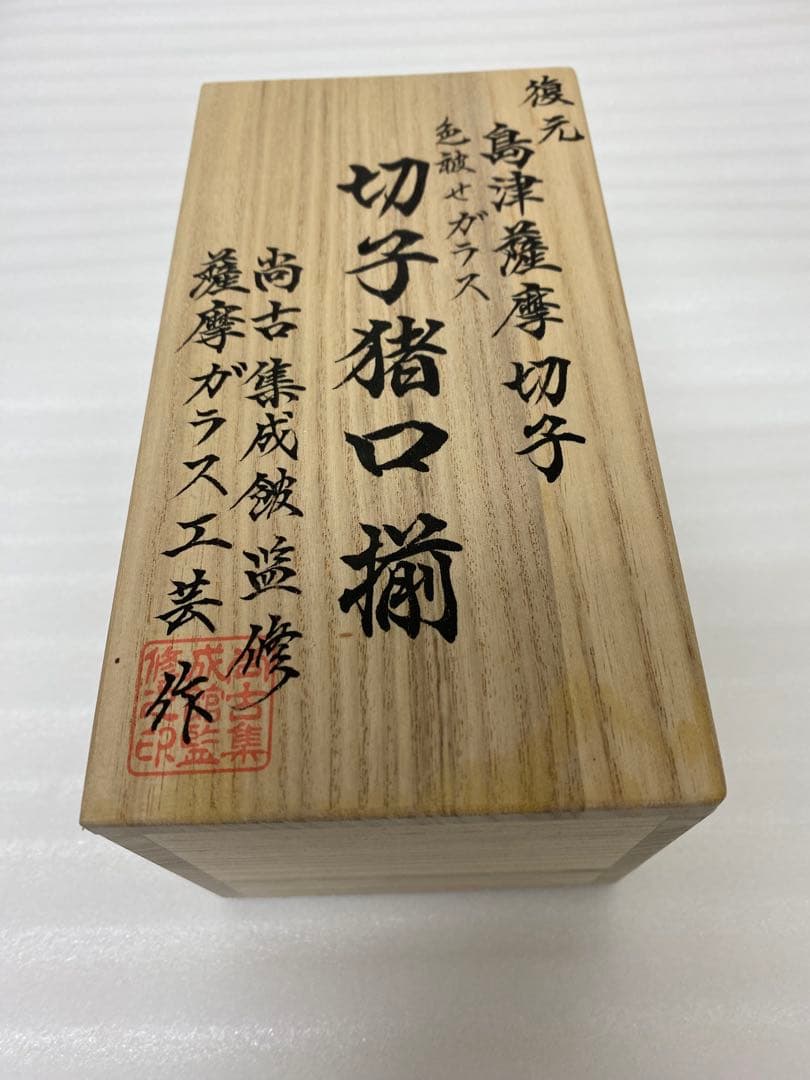 復元
島津薩摩切子
色被せガラス
切子猪口揃
尚古集成館監修
薩摩ガラス工芸作
尚古集
成館監
修之印